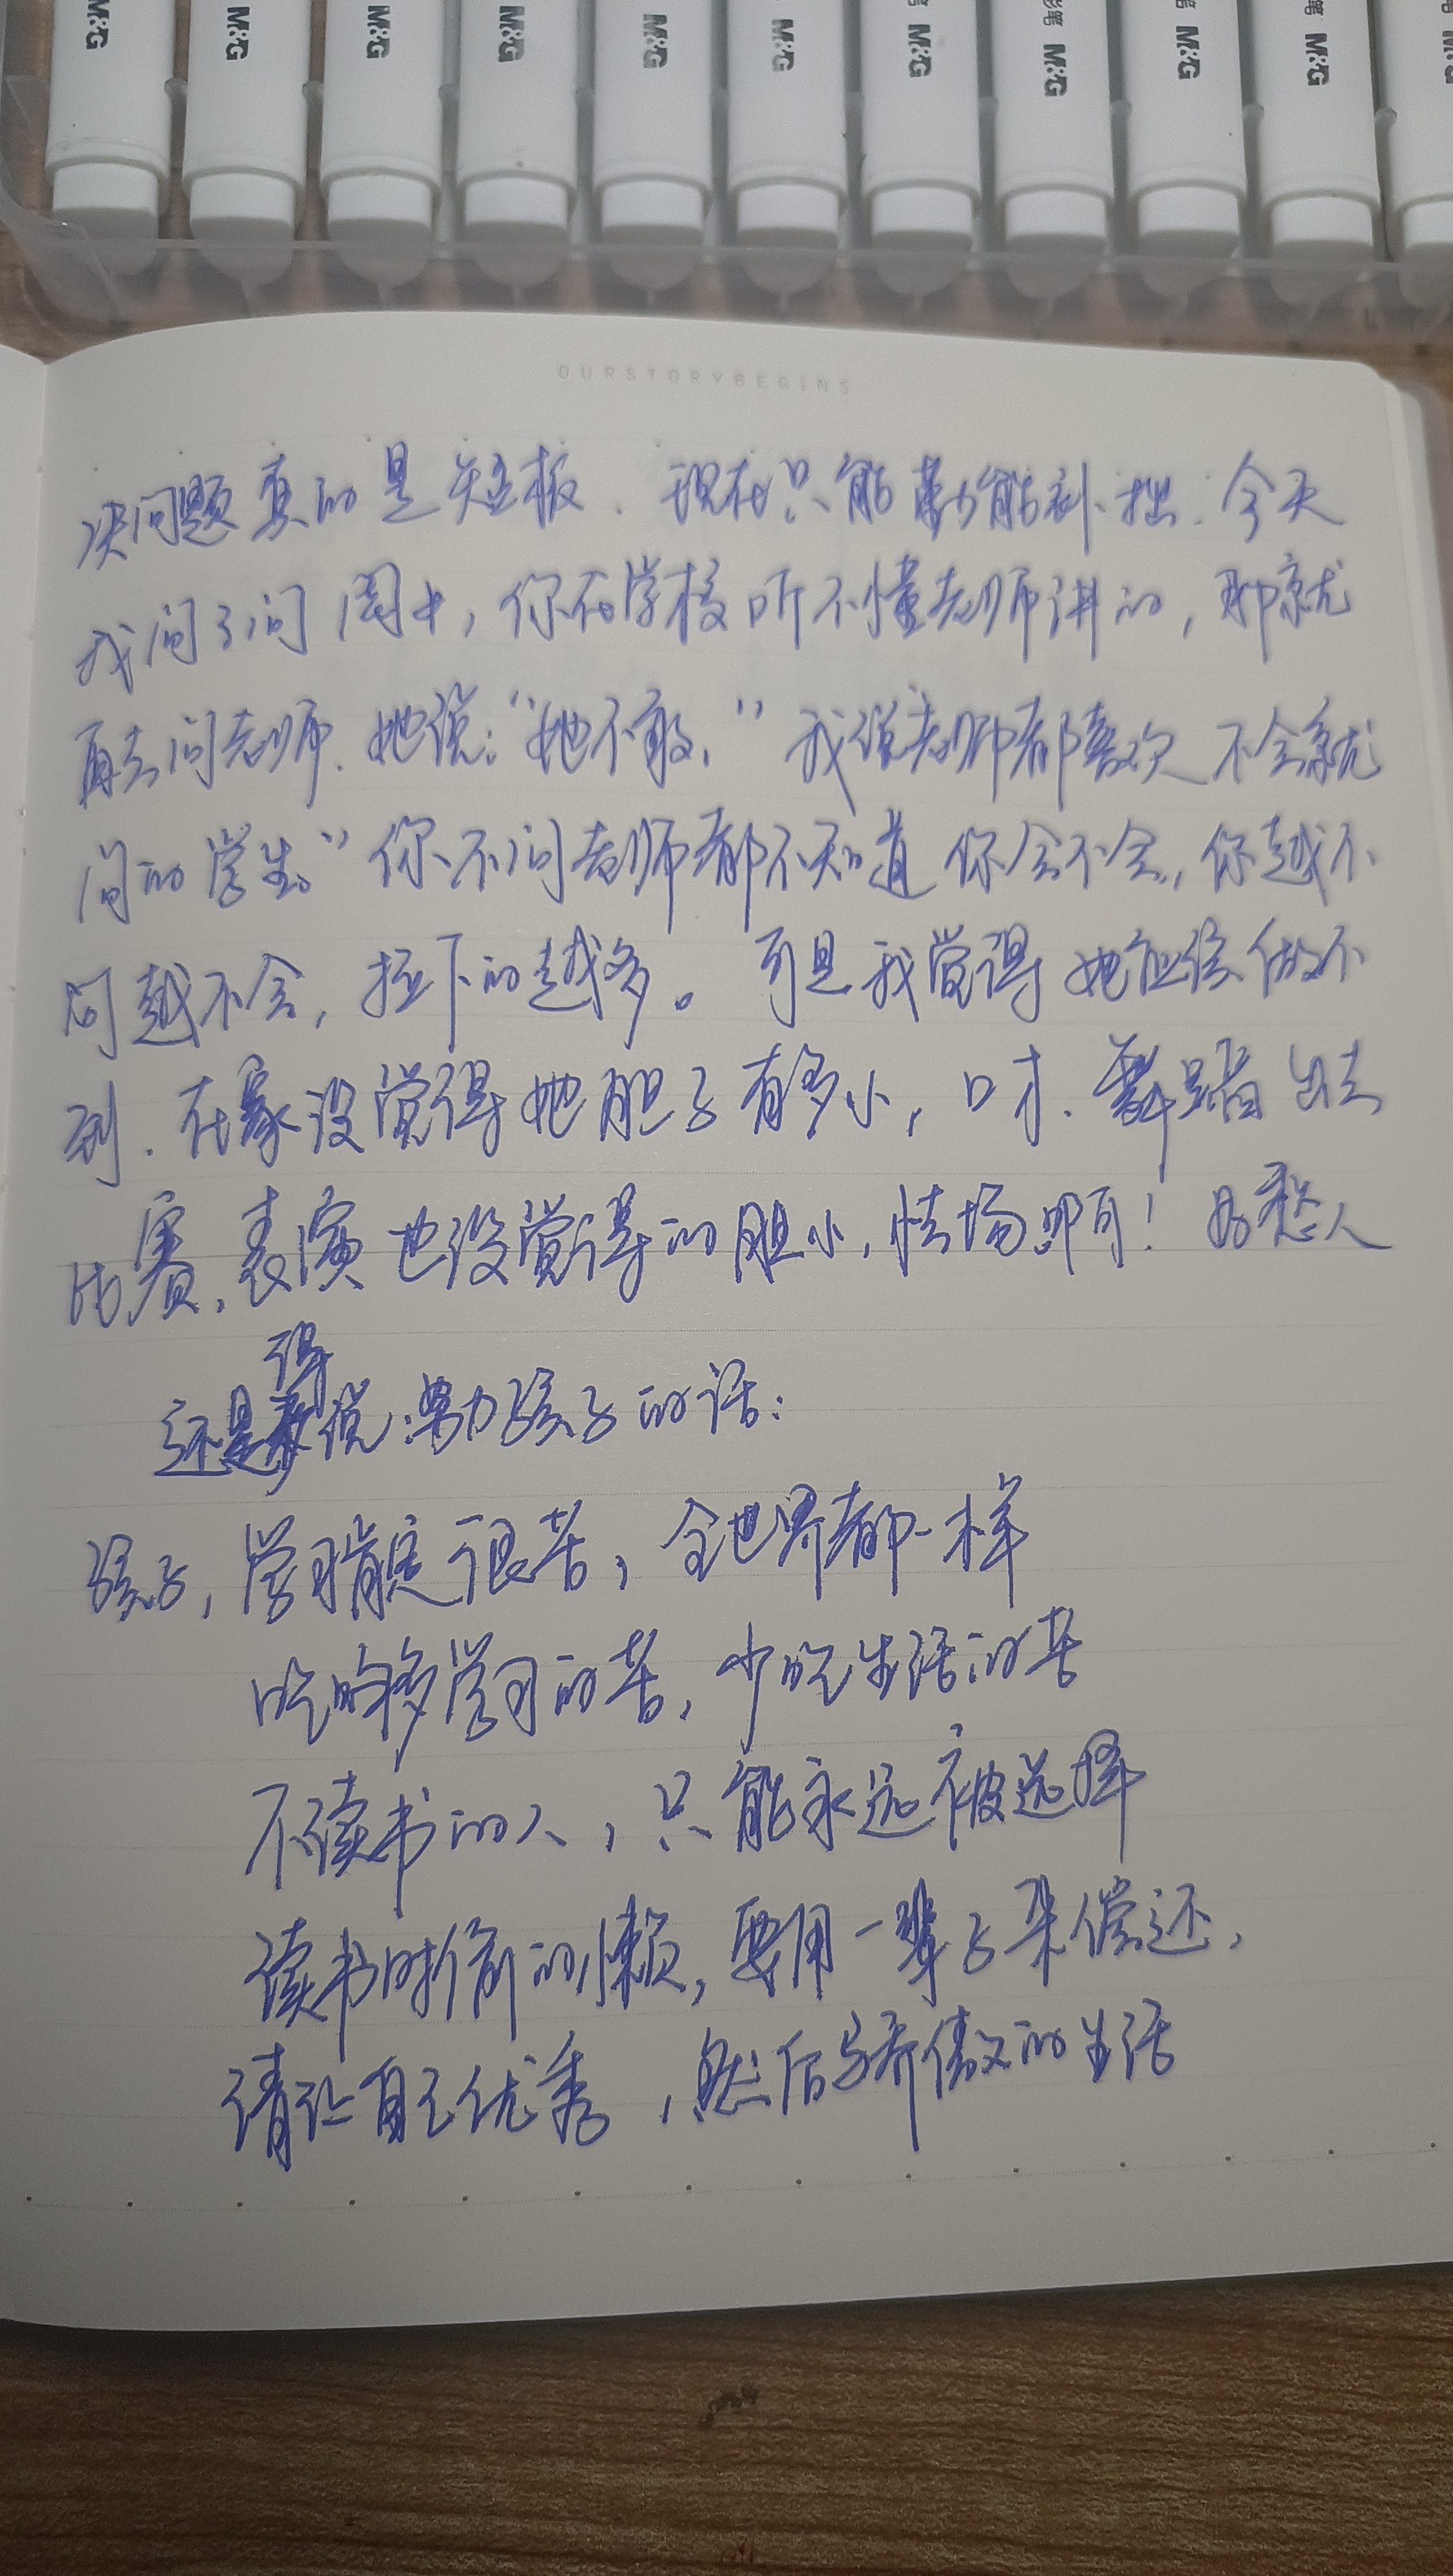 M&G M&G M&G M&G M&G M&G 笔 M&G 彩笔 M&G 笔 M&G 笔 M&G
OURSTORYBEGINS
决问题真的是短板．现在只能勤能补拙．今天
我问了问周十，你在学校听不懂老师讲的，那就
再去问老师．她说：“她不敢，”我说老师都喜欢不会就
问的学生。”你不问老师都不知道你会不会，你越不
问越不会，拉下的越多。可是我觉得她应该做不
到．在家没觉得她胆子有多小，口才、舞蹈出去
比赛，表演也没觉得的胆小，怯场啊！好愁人
还是得说努力孩子的话：
孩子，学习肯定很苦，全世界都一样
吃的够学习的苦，少吃生活的苦
不读书的人，只能永远被选择
读书时偷的懒，要用一辈子来偿还，
请让自己优秀，然后骄傲的生活